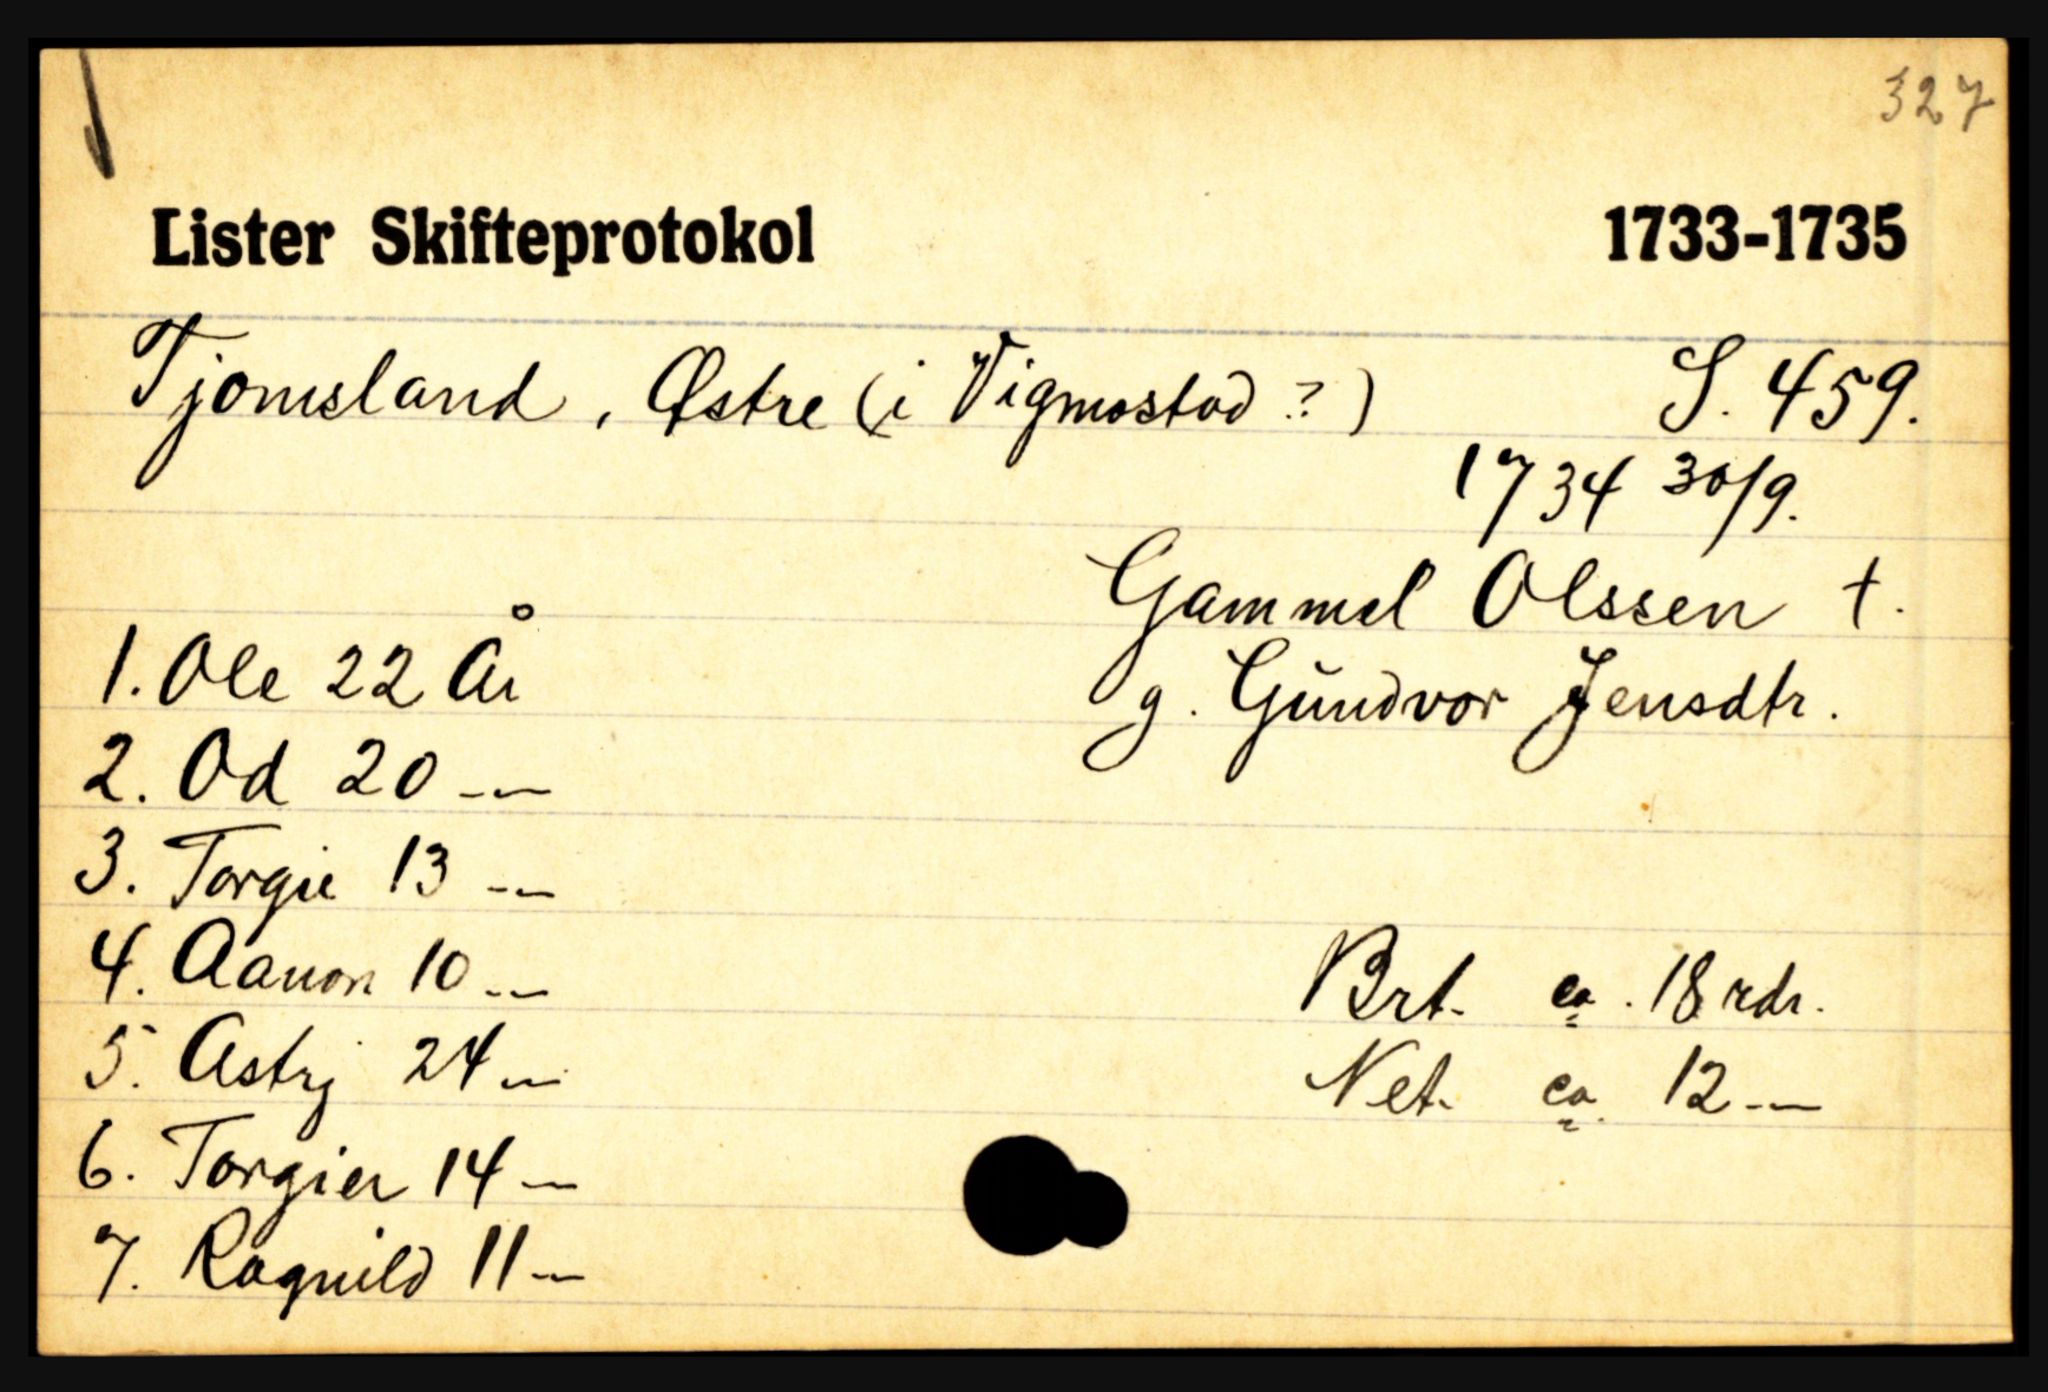 327
Lister Skifteprotokol 1733-1735
Tjomsland, Østre (i Vigmostad ?) S. 459.
1734 30/9.
Gammel Olssen †.
g. Gundvor Jensdtr.
1. Ole 22 År
2. Od 20 -„-
3. Torgie 13 -„-
4. Aanon 10 -„-
5. Astrj 24 -„-
6. Torgier 14 -„-
7. Ragnild 11 -„-
Brt. ca. 18 rdr.
Net. ca. 12 -„-